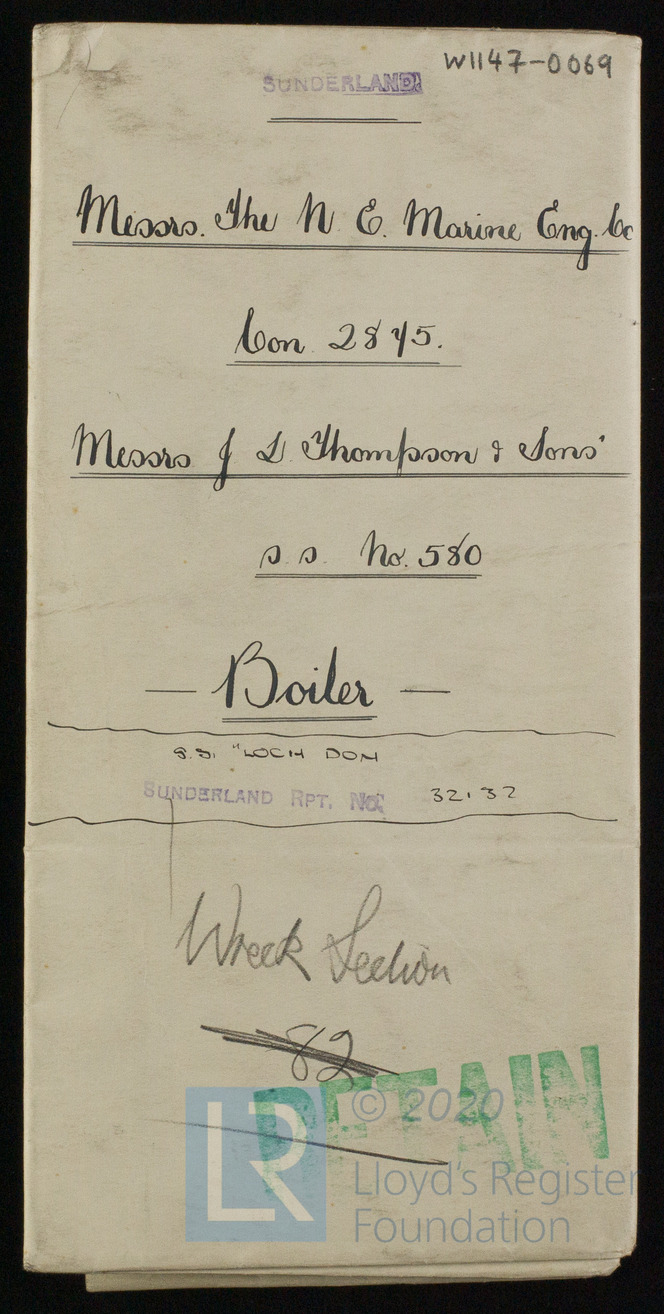 W1147-0069
SUNDERLAND.
Messrs. The N. E. Marine Eng. Co
Con. 2845.
Messrs J L Thompson & Sons'
s.s. No. 580
— Boiler —
S.S. "LOCH DON
SUNDERLAND RPT. No. 32132
Wreck Section
82
RETAIN
© 2020
LR
Lloyd's Register
Foundation